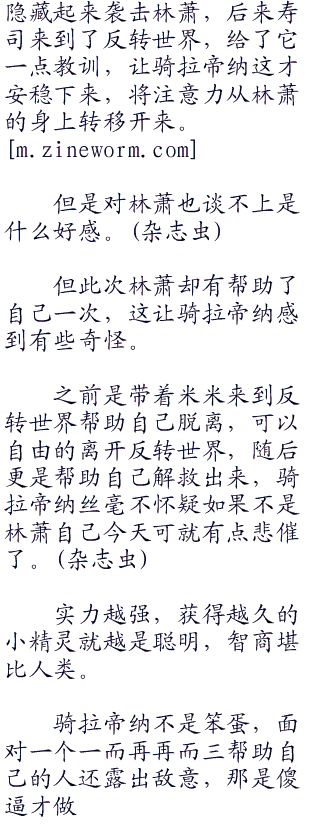 隐藏起来袭击林萧，后来寿
司来到了反转世界，给了它
一点教训，让骑拉帝纳这才
安稳下来，将注意力从林萧
的身上转移开来。
[m.zineworm.com]
但是对林萧也谈不上是
什么好感。(杂志虫)
但此次林萧却有帮助了
自己一次，这让骑拉帝纳感
到有些奇怪。
之前是带着米米来到反
转世界帮助自己脱离，可以
自由的离开反转世界，随后
更是帮助自己解救出来，骑
拉帝纳丝毫不怀疑如果不是
林萧自己今天可就有点悲催
了。(杂志虫)
实力越强，获得越久的
小精灵就越是聪明，智商堪
比人类。
骑拉帝纳不是笨蛋，面
对一个一而再再而三帮助自
己的人还露出敌意，那是傻
逼才做